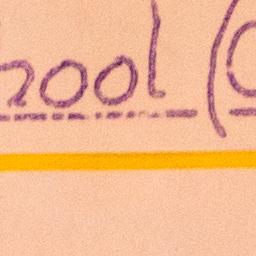 hool (